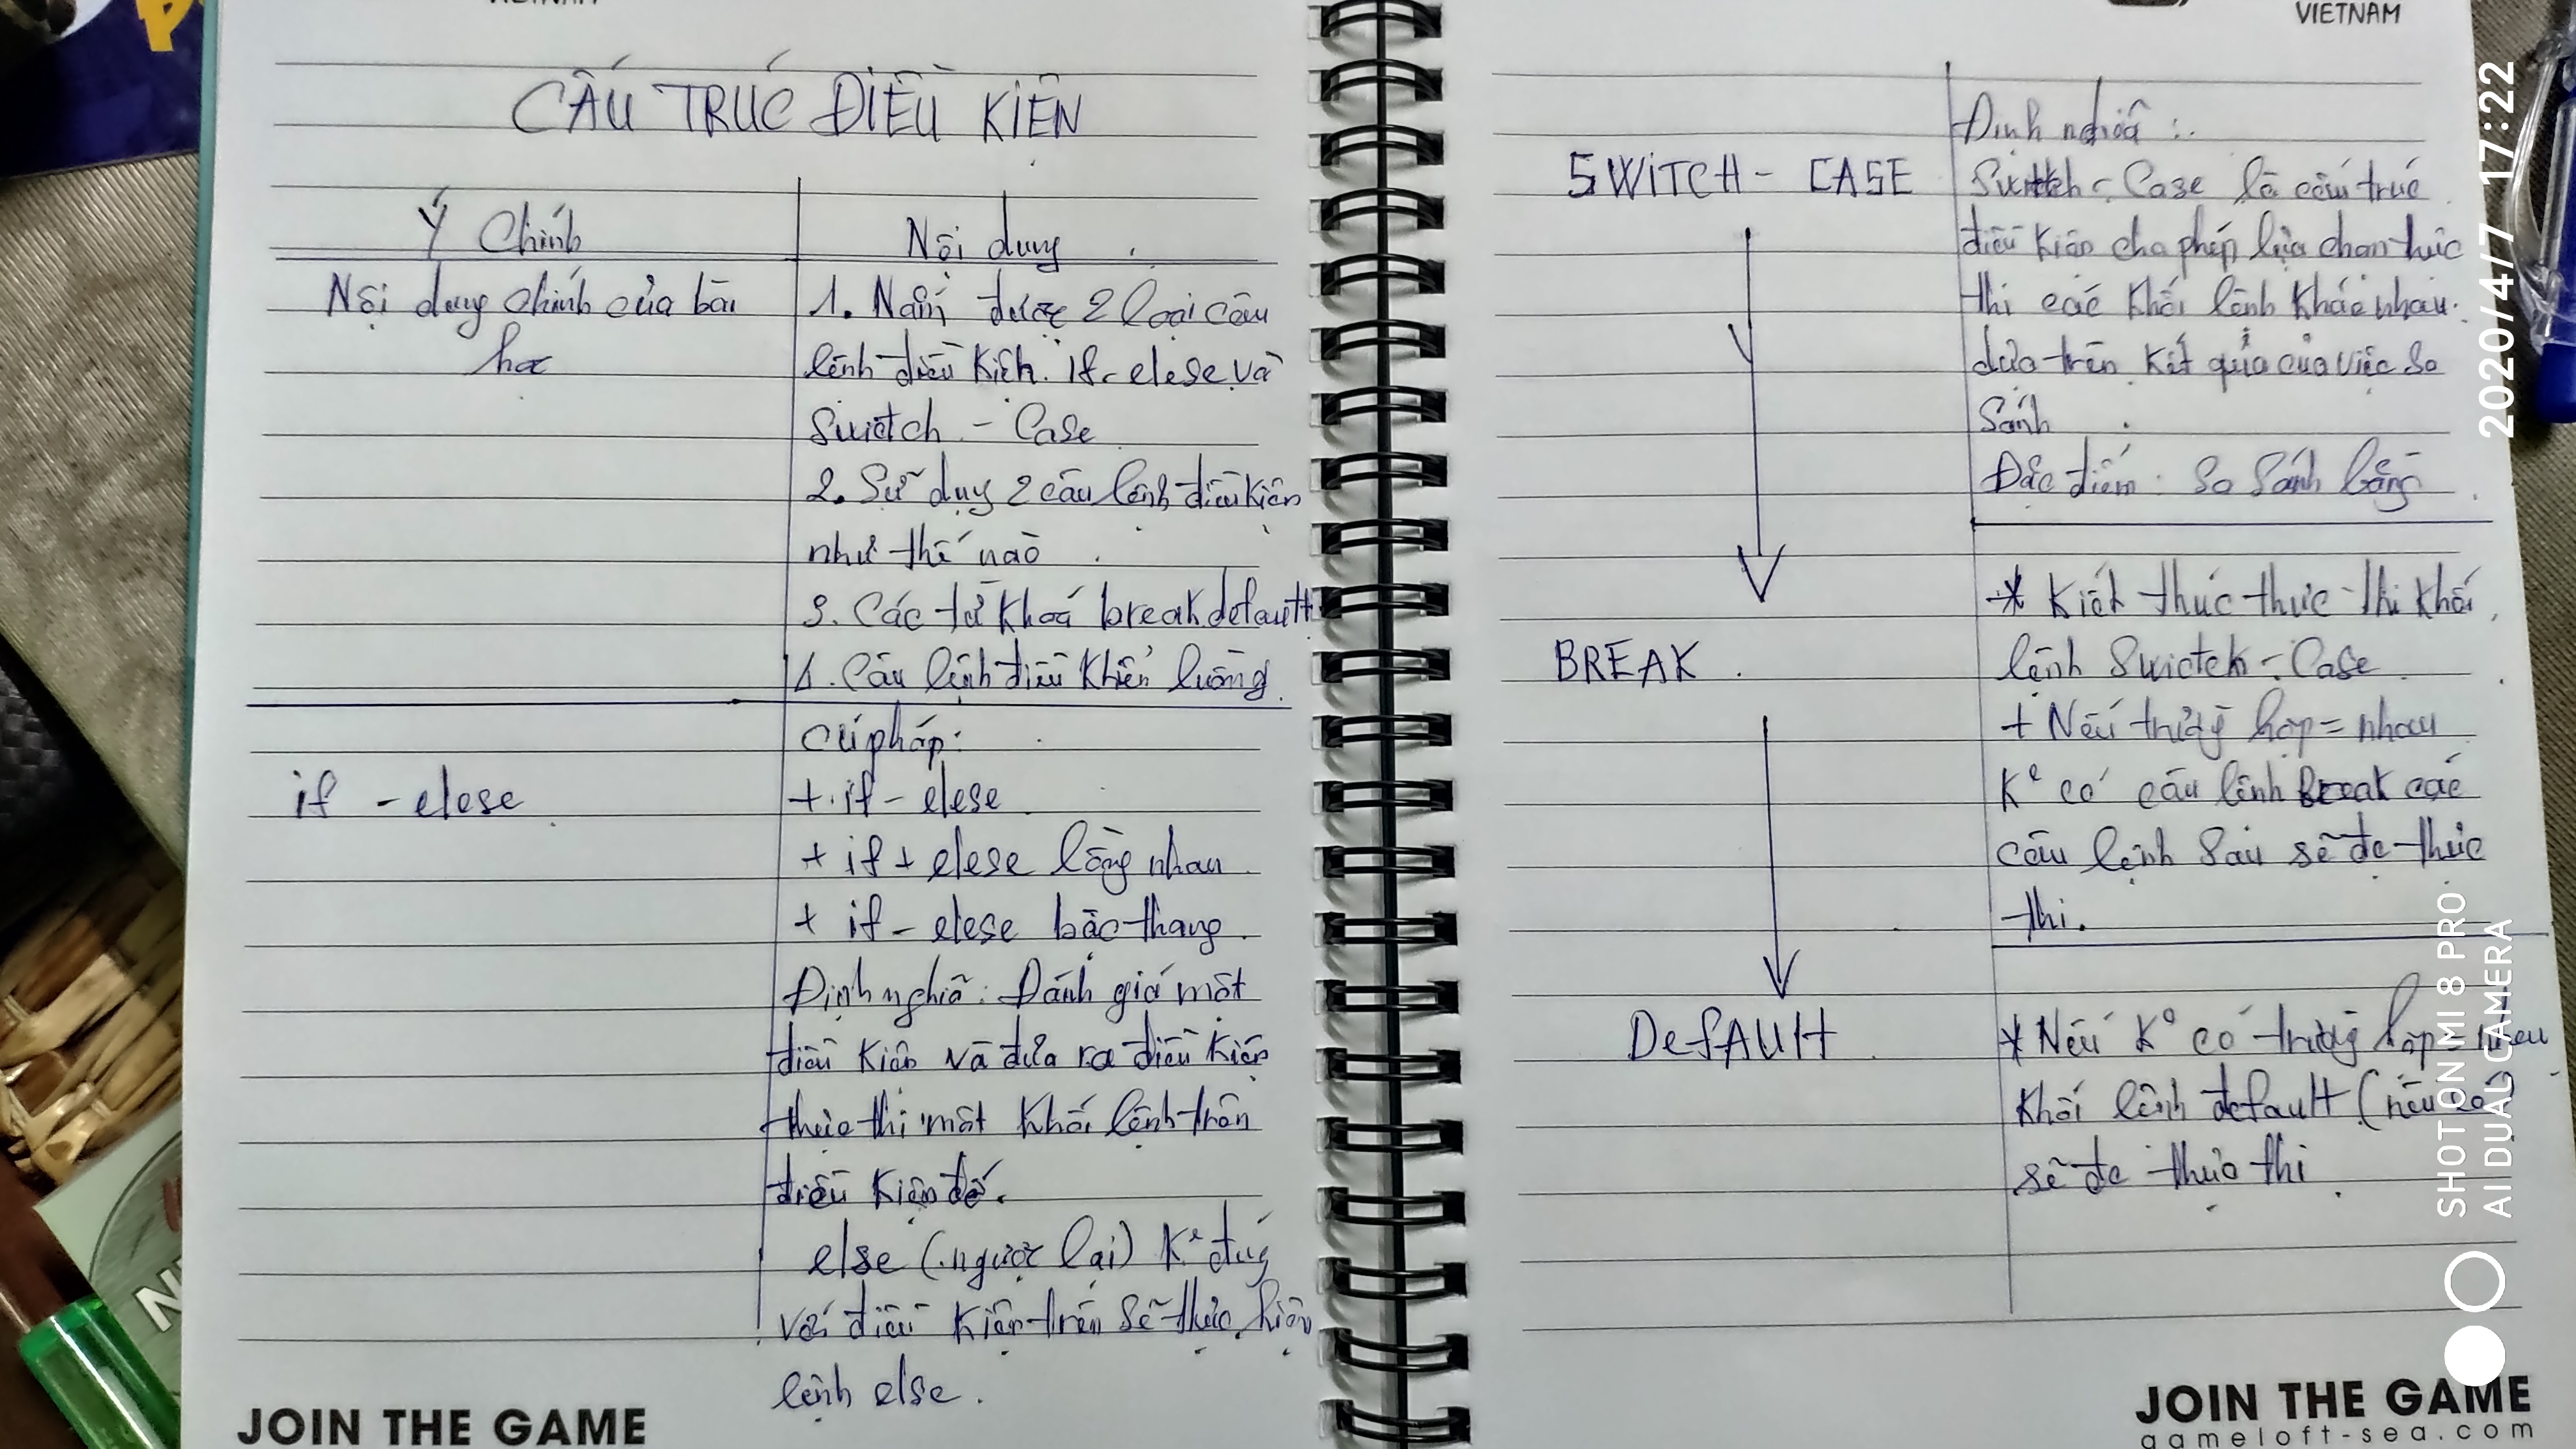 CẤU TRÚC ĐIỀU KIỆN
Ý Chính
Nội dung
Nội dung chính của bài
học
1. Nắm được 2 loại câu
lệnh điều kiện. if - elese và
Swictch - Case
2. Sử dụng 2 câu lệnh điều kiện
như thế nào
3. Các từ khoá break default
4. Câu lệnh điều khiển luồng
if - elese
Cú pháp:
+ if - elese
+ if + elese lồng nhau
+ if - elese bậc thang
Định nghĩa: Đánh giá một
điều kiện và đưa ra điều kiện
thực thi một khối lệnh trên
điều kiện đó.
else (ngược lại) K° đúng
với điều kiện trên sẽ thực hiện
lệnh else.
JOIN THE GAME
VIETNAM
SWITCH - CASE
Định nghĩa:
Switch - Case là cấu trúc
điều kiện cho phép lựa chọn thực
thi các khối lệnh khác nhau
dựa trên kết quả của việc so
sánh
Đặc điểm: So sánh bằng
BREAK
* Kiết thúc thực thi khối
lệnh Swictch - Case
+ Nếu trường hợp = nhau
K° có câu lệnh break các
câu lệnh sau sẽ đc thực
thi.
DefAUlt
* Nếu K° có trường hợp = nhau
khối lệnh default (nếu có)
sẽ đc thực thi
JOIN THE GAME
gameloft-sea.com
2020/4/7 17:22
SHOT ON MI 8 PRO
AI DUAL CAMERA